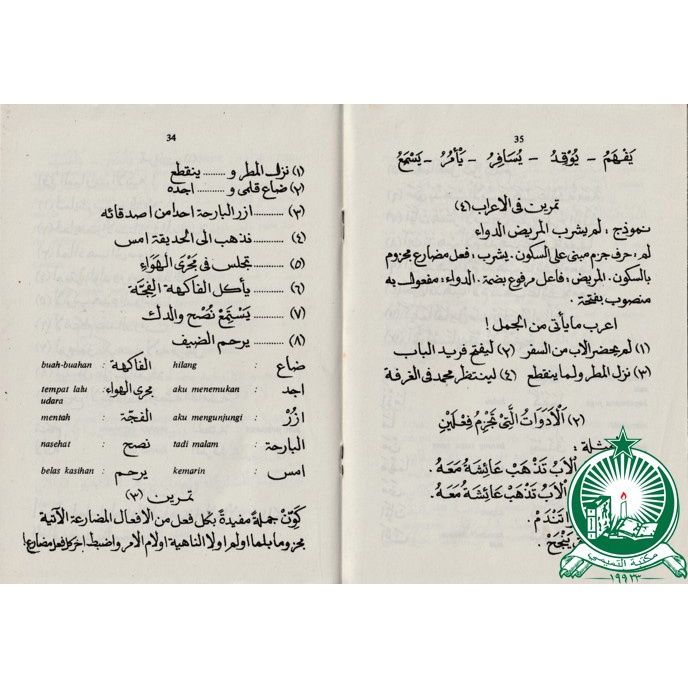 34
(١) نزل المطر و ........ ينقطع
(٢) ضاع قلمى و ........ اجده
(٣) ........... ازر البارحة احدا من اصدقائه
(٤) ........... نذهب الى الحديقة امس
(٥) ........... تجلس فى مجرى الهَوَاءِ
(٦) ........... يأكل الفاكهة الفِجَّة
(٧) ........... يَسْتَمِعْ نُصْح والدك
(٨) ........... يرحم الضيف
ضاع : hilang الفاكهة : buah-buahan
اجد : aku menemukan مجرى الهواء : tempat lalu udara
ازُرْ : aku mengunjungi الفجّة : mentah
البارحة : tadi malam نصح : nasehat
امس : kemarin يرحم : belas kasihan
تمرين (٣)
كَوِّنْ جملةً مفيدةً بكل فعل من الافعال المضارعة الآتية
مجزوما بلما اولم اولا الناهية اولام الامر واضبط اخر كل فعل مضارع!
35
يَفْهَمُ – يُوْقِدُ – يُسَافِرُ – يَأْمُرُ – يَسْتَمِعُ
تمرين فى الاعراب (٤)
نموذج : لم يشرب المريض الدواء
لم : حرف جزم مبنى على السكون. يشرب : فعل مضارع مجزوم
بالسكون. المريض : فاعل مرفوع بضمة. الدواء : مفعول به
منصوب بفتحة.
اعرب ما يأتى من الجمل !
(١) لم يحضر الاب من السفر (٢) ليفتح فريد الباب
(٣) نزل المطر ولما ينقطع (٤) لينتظر محمد فى الغرفة
(٢) اَلْاَدَوَاتُ الَّتِيْ تَجْزِمُ فِعْلَيْنِ
مثلة :
الْاَبُ تَذْهَبْ عَائِشَةُ مَعَهُ.
الْاَبُ تَذْهَبْ عَائِشَةُ مَعَهُ.
تَنْدَمْ.
يَنْجَحْ.
مكتبة التميمي
١٩٩٣٣